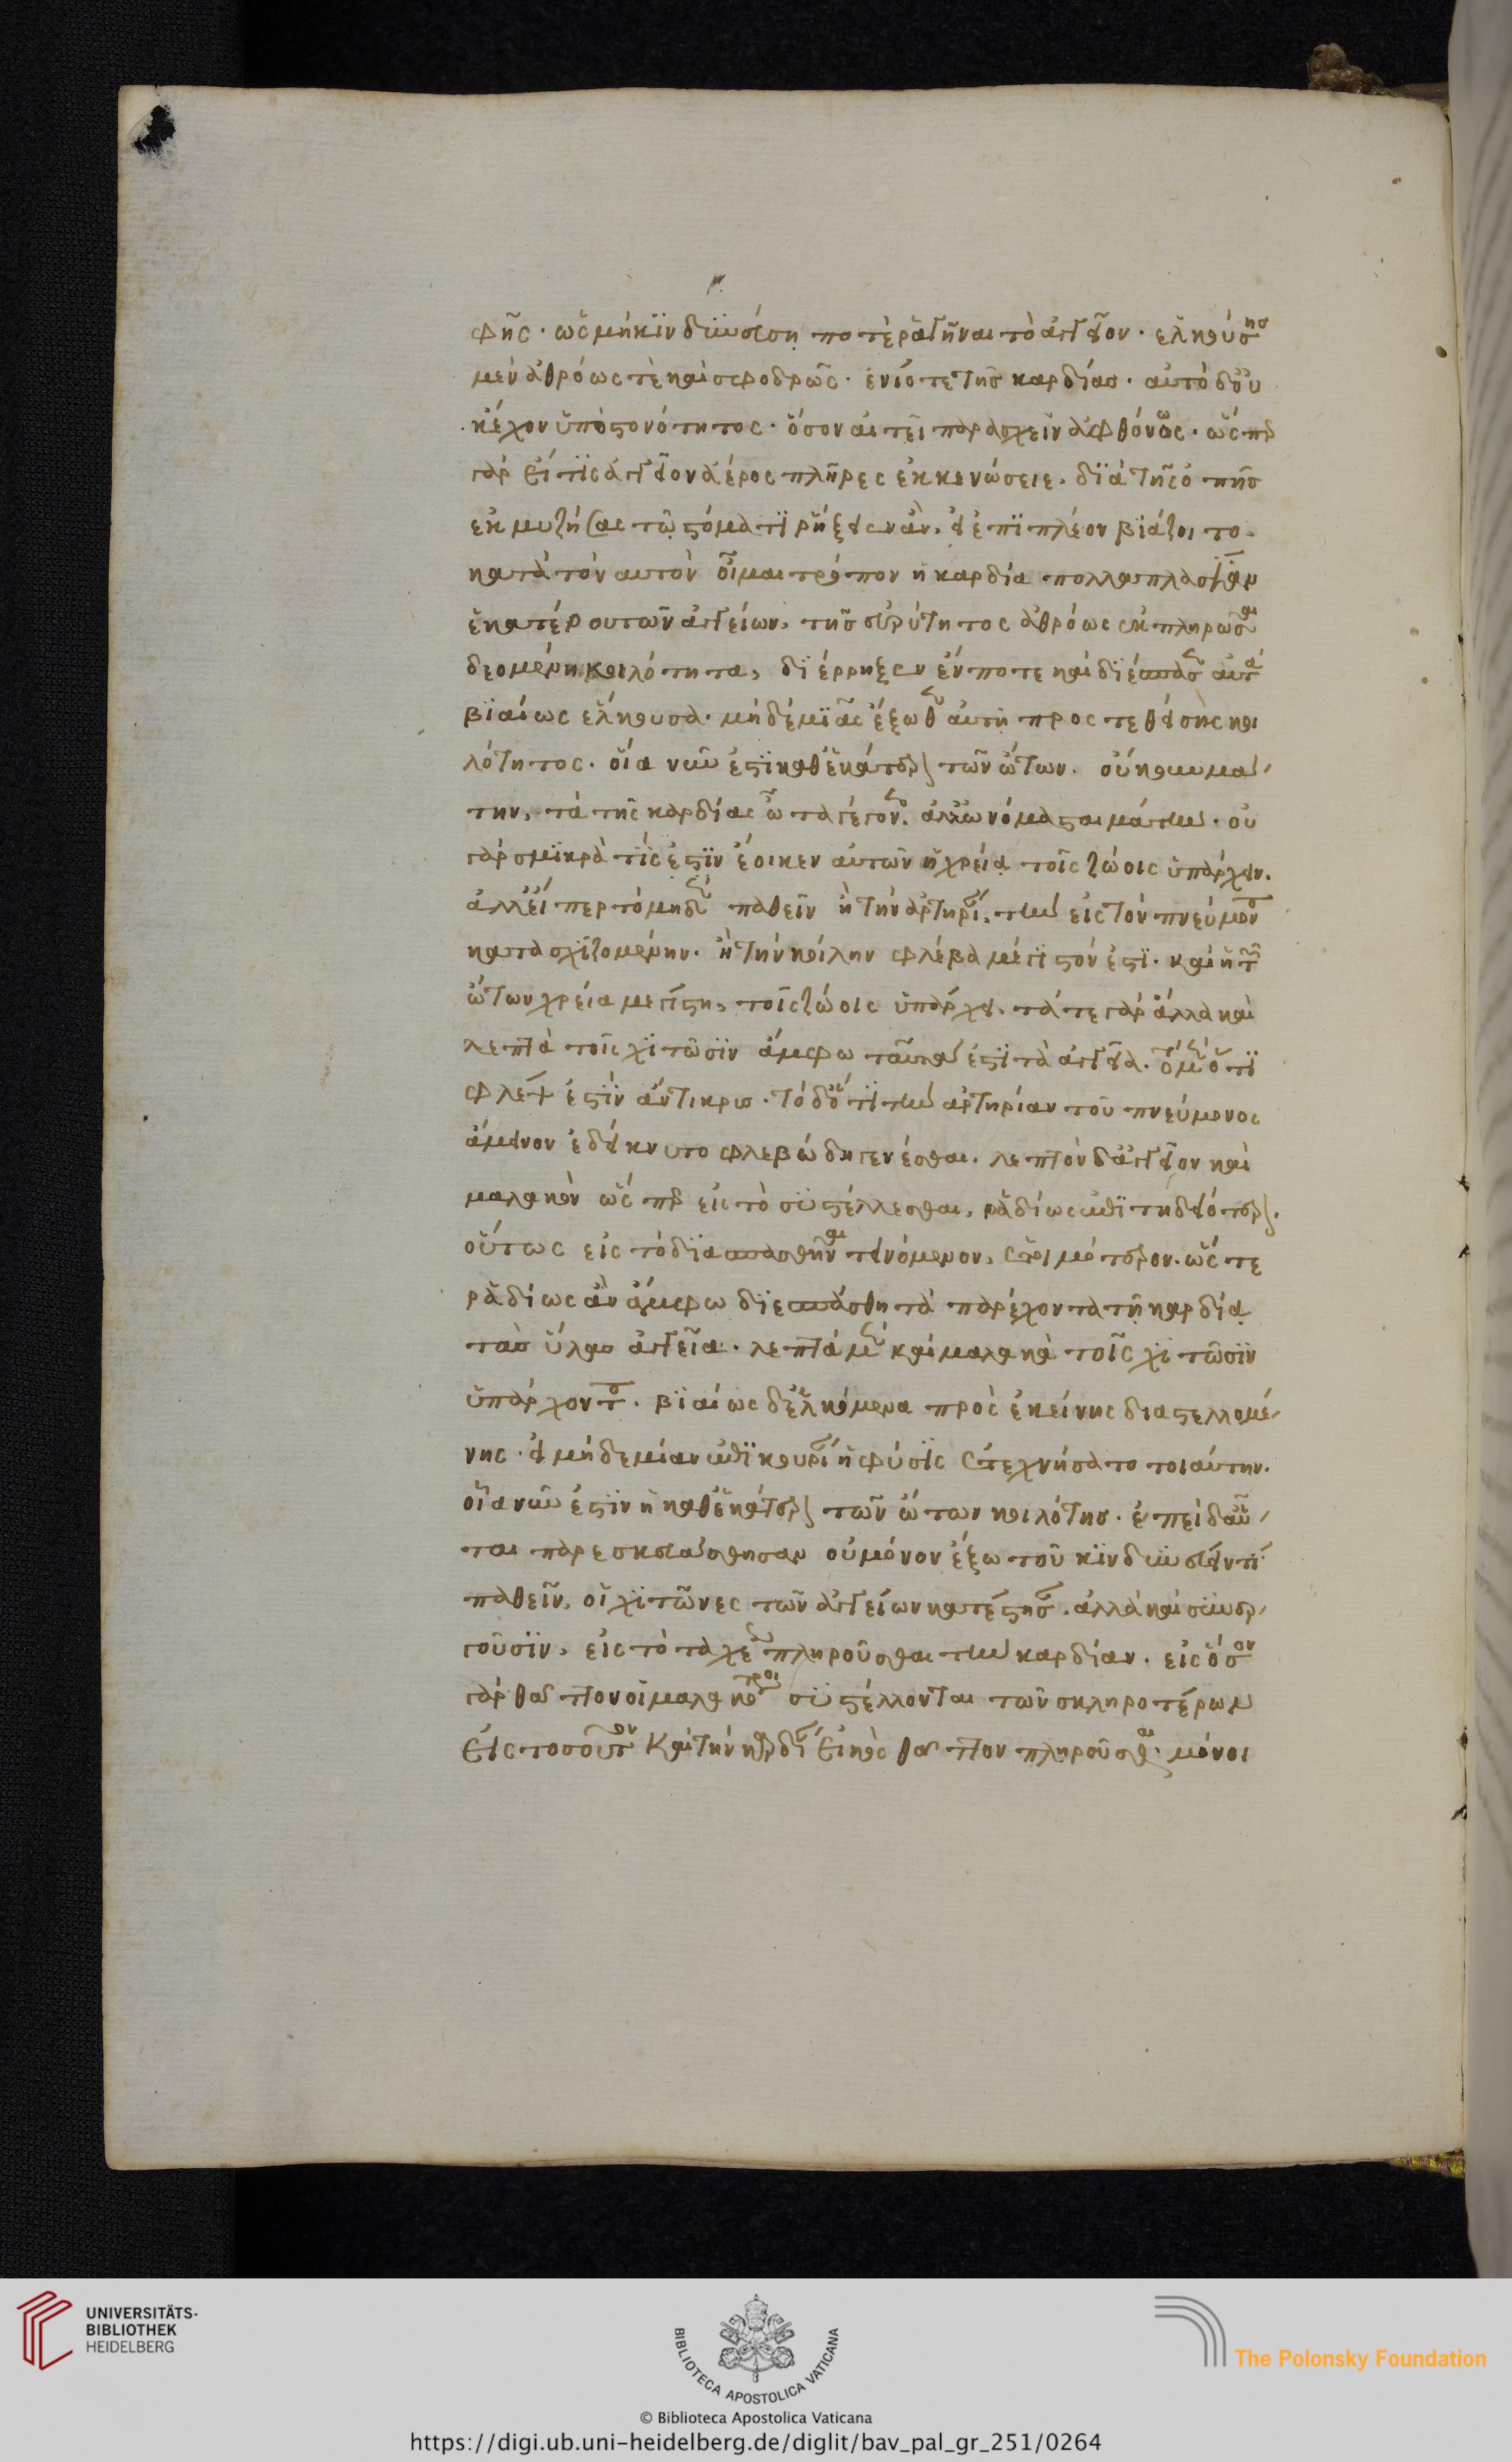 φῆς· ὡς μὴ κινδυνεύσῃ ποτὲ ῥαγῆναι τὸ ἀγγεῖον· ἑλκούσης
μὲν ἀθρόως τὲ καὶ σφοδρῶς· ἐνίοτε τῆς καρδίας· αὐτὸ δ' οὐ
κ' ἔχον ὑπὸ στενότητος· ὅσον αἰτεῖ παρασχεῖν ἀφθόνως· ὥσπερ
γὰρ εἴ τις ἀγγεῖον ἀέρος πλῆρες ἐκκενώσειε, διὰ τῆς ὀπῆς
ἐκμυζήσας τῷ στόματι ῥήξειεν ἂν, εἰ ἐπὶ πλέον βιάζοιτο·
κατὰ τὸν αυτὸν οἶμαι τρόπον ἡ καρδία πολλαπλασίαν
ἑκατέρου τῶν ἀγγείων, τῆς εὐρύτητος ἀθρόως ἐκπληρῶσαι
δεομένη κοιλότητα, διέρρηξεν ἄν ποτε καὶ διέσπασεν αὐτὰ
βιαίως ἕλκουσα· μὴ δεμιᾶς ἔξωθεν αὐτῇ προστεθείσης κοι
λότητος· οἵα νῦν ἐστὶ καθ' ἑκάτερον τῶν ὤτων· οὔκουν μά
την, τὰ τῆς καρδίας ὦτα γέγονεν· ἀλλ' ὠνόμασται μάτην· οὐ
γὰρ σμικρά τις ἐστιν ἔοικεν αὐτῶν ἡ χρεία τοῖς ζώοις ὑπάρχειν.
ἀλλ' εἴπερ τὸ μηδὲν παθεῖν ἢ τὴν ἀρτηρίαν, τὴν εἰς τὸν πνεύμονα
κατασχιζομένην· ἢ τὴν κοίλην φλέβα μέγιστόν ἐστι· καὶ ἡ τῶν
ὤτων χρεία μεγίστη, τοῖς ζώοις ὑπάρχει. τά τε γὰρ ἄλλα καὶ
λεπτὰ τοῖς χιτῶσιν ἄμφω ταῦτά ἐστι τὰ ἀγγεῖα. τὸ μὲν ὅτι
φλὲψ ἐστὶν ἄντικρυς· τὸ δ' ὅτι τὴν ἀρτηρίαν τοῦ πνεύμονος
ἄμεινον ἐδείκνυτο φλεβώδη γενέσθαι· λεπτὸν δ' ἀγγεῖον καὶ
μαλακὸν ὥσπερ εἰς τὸ συστέλλεσθαι, ῥᾳδίως ἐπιτηδειότερον.
οὕτως εἰς τὸ διασπασθῆναι τεινόμενον, ἑτοιμότερον. ὥστε
ῥᾳδίως ἂν ἄμφω διεσπάσθη τὰ παρέχοντα τῇ καρδίᾳ
τὰς ὕλας ἀγγεῖα· λεπτὰ μὲν καὶ μαλακὰ τοῖς χιτῶσιν
ὑπάρχοντα· βιαίως δ' ἑλκόμενα πρὸς ἐκείνης διαστελλομέ
νης· εἰ μὴ δεμίαν ἐπικουρίαν ἡ φύσις ἐτεχνήσατο τοιαύτην.
οἵα νῦν ἐστὶν ἡ καθ' ἑκάτερον τῶν ὤτων κοιλότης· ἐπεὶ δ' αὗ
ται παρεσκευάσθησαν οὐ μόνον ἔξω τοῦ κινδυνεύειν τι
παθεῖν, οἱ χιτῶνες τῶν ἀγγείων κατέστησαν. ἀλλὰ καὶ συνερ
γοῦσιν, εἰς τὸ ταχέως πληροῦσθαι τὴν καρδίαν· εἰς ὅσον
γὰρ θᾶττον οἱ μαλακώτεροι συστέλλονται τῶν σκληροτέρων
εἰς τοσοῦτον καὶ τὴν καρδίαν εἰκὸς θᾶττον πληροῦσθαι· μόνοι
UNIVERSITÄTS-
BIBLIOTHEK
HEIDELBERG
BIBLIOTECA APOSTOLICA VATICANA
The Polonsky Foundation
© Biblioteca Apostolica Vaticana
https://digi.ub.uni-heidelberg.de/diglit/bav_pal_gr_251/0264